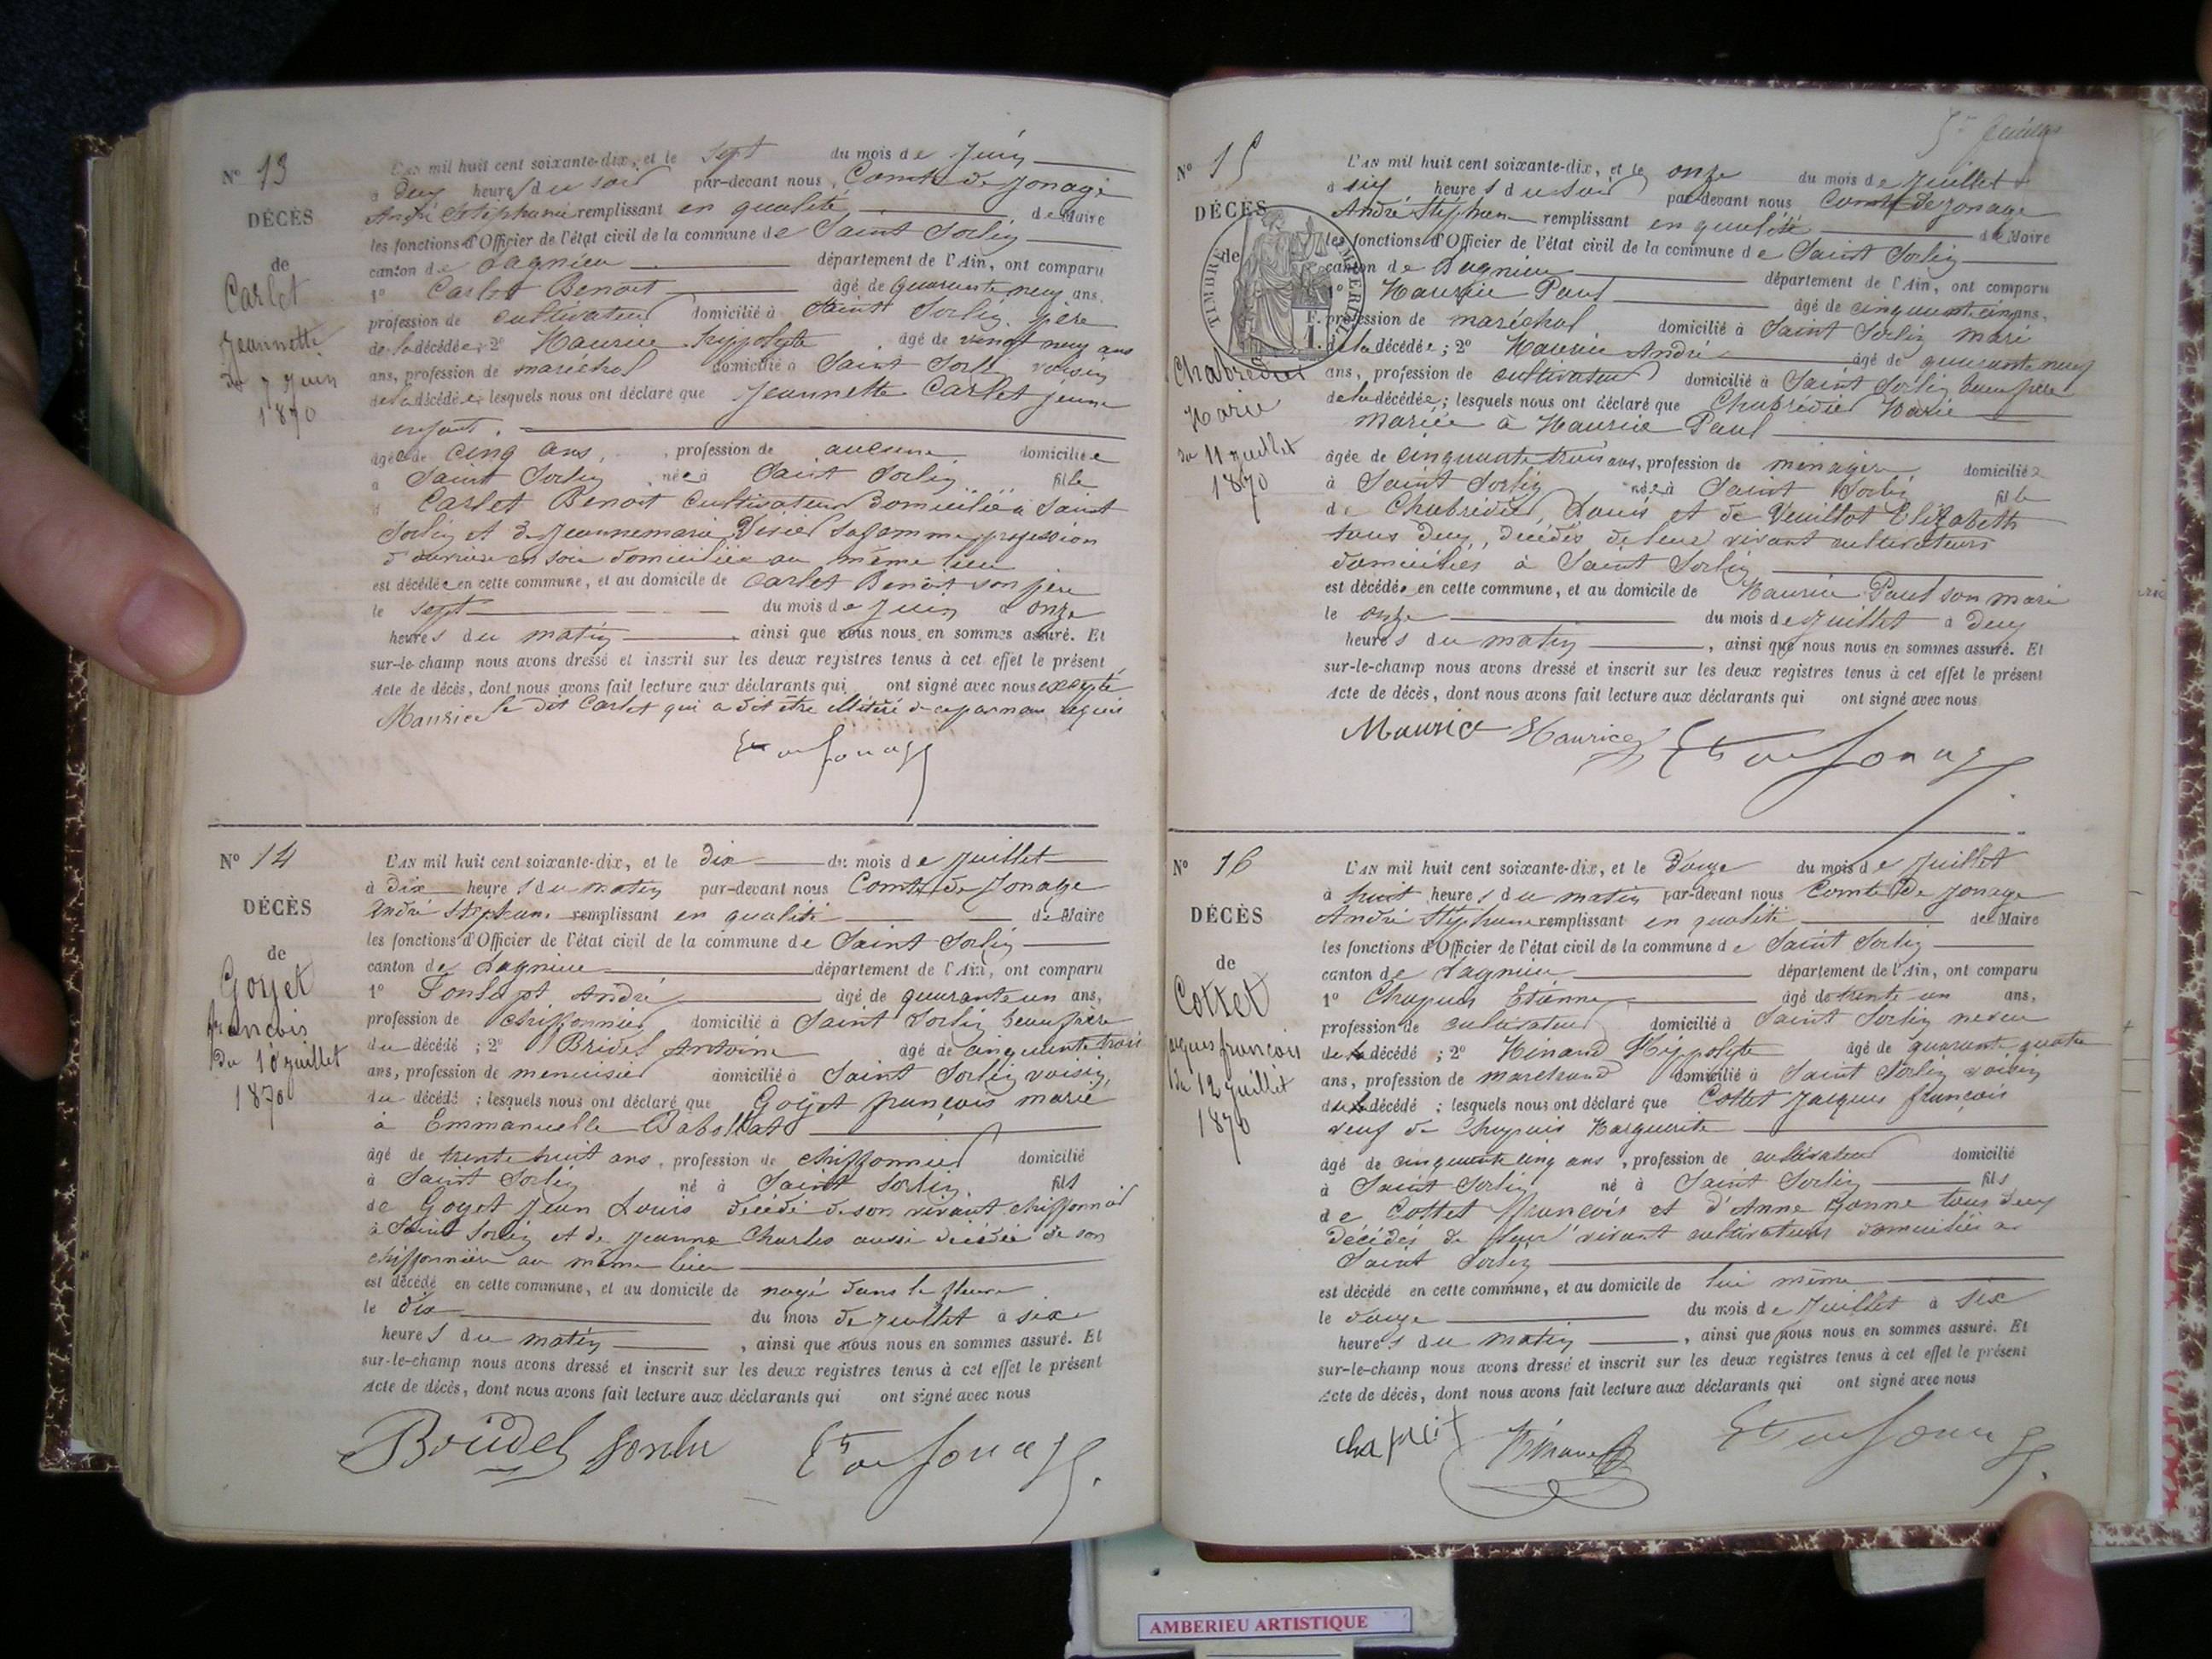 N° 13
DÉCÈS
de
Carlet
Jeannette
du 7 Juin
1870
L'AN mil huit cent soixante-dix, et le sept du mois de Juin
à deux heures du soir par-devant nous, Comte de Jonage
André Stéphane remplissant en qualité de Maire
les fonctions d'Officier de l'état civil de la commune de Saint Sorlin
canton de Lagnieu département de l'Ain, ont comparu
1° Carlet Benoit âgé de quarante neuf ans,
profession de cultivateur domicilié à Saint Sorlin père
de la décédée; 2° Maurice hippolyte âgé de vingt neuf ans
ans, profession de maréchal domicilié à Saint Sorlin voisin
de la décédée; lesquels nous ont déclaré que Jeannette Carlet jeune
enfant.
âgée de cinq ans, profession de aucune domiciliée
à Saint Sorlin née à Saint Sorlin fille
d Carlet Benoit Cultivateur domicilié à Saint
Sorlin et de Jeannemarie sa femme profession
d'ouvrière en soie domiciliée au même lieu
est décédée en cette commune, et au domicile de Carlet Benoit son père
le sept du mois de Juin à onze
heures du matin ainsi que nous nous en sommes assuré. Et
sur-le-champ nous avons dressé et inscrit sur les deux registres tenus à cet effet le présent
Acte de décès, dont nous avons fait lecture aux déclarants qui ont signé avec nous excepté
Maurice le dit Carlet qui a dit être illitéré de ce par nous requis
Cte de Jonage
N° 14
DÉCÈS
de
Goyet
françois
Du 10 juillet
1870
L'AN mil huit cent soixante-dix, et le dix du mois de Juillet
à dix heures du matin par-devant nous Comte de Jonage
André Stéphane remplissant en qualité de Maire
les fonctions d'Officier de l'état civil de la commune de Saint Sorlin
canton de Lagnieu département de l'Ain, ont comparu
1° André âgé de quarante un ans,
profession de chiffonnier domicilié à Saint Sorlin beau frère
du décédé; 2° Bridel Antoine âgé de cinquante trois
ans, profession de menuisier domicilié à Saint Sorlin voisin
du décédé; lesquels nous ont déclaré que Goyet françois marié
à Emmanuelle Babollat
âgé de trente huit ans, profession de chiffonnier domicilié
à Saint Sorlin né à Saint Sorlin fils
de Goyet Jean Louis décédé de son vivant chiffonnier
à Saint Sorlin et de Jeanne Charles aussi décédée de son
chiffonnière au même lieu
est décédé en cette commune, et au domicile de noyé dans le fleuve
le dix du mois de Juillet à six
heures du matin, ainsi que nous nous en sommes assuré. Et
sur-le-champ nous avons dressé et inscrit sur les deux registres tenus à cet effet le présent
Acte de décès, dont nous avons fait lecture aux déclarants qui ont signé avec nous
Bridel Cte de Jonage
N° 15
DÉCÈS
de
TIMBRE IMPERIAL
Chabredier
Marie
du 11 juillet
1870
L'AN mil huit cent soixante-dix, et le onze du mois de Juillet
à six heures du soir par-devant nous Comte de Jonage
André Stéphane remplissant en qualité de Maire
les fonctions d'Officier de l'état civil de la commune de Saint Sorlin
canton de Lagnieu département de l'Ain, ont comparu
1° Maurice Paul âgé de cinquante cinq ans,
profession de maréchal domicilié à Saint Sorlin mari
de la décédée; 2° Maurice André âgé de quarante neuf
ans, profession de cultivateur domicilié à Saint Sorlin beau frère
de la décédée; lesquels nous ont déclaré que Chabrédier Marie
mariée à Maurice Paul
âgée de cinquante trois ans, profession de ménagère domiciliée
à Saint Sorlin née à Saint Sorlin fille
de Chabrédier Louis et de Veuillot Elizabeth
tous deux, décédés de leur vivant cultivateurs
domiciliés à Saint Sorlin
est décédée en cette commune, et au domicile de Maurice Paul son mari
le onze du mois de Juillet à deux
heures du matin, ainsi que nous nous en sommes assuré. Et
sur-le-champ nous avons dressé et inscrit sur les deux registres tenus à cet effet le présent
Acte de décès, dont nous avons fait lecture aux déclarants qui ont signé avec nous
Maurice Maurice Cte de Jonage
N° 16
DÉCÈS
de
Cottet
jacques françois
Du 12 juillet
1870
L'AN mil huit cent soixante-dix, et le douze du mois de Juillet
à huit heures du matin par-devant nous Comte De Jonage
André Stéphane remplissant en qualité de Maire
les fonctions d'Officier de l'état civil de la commune de Saint Sorlin
canton de Lagnieu département de l'Ain, ont comparu
1° Chapuis Etienne âgé de trente un ans,
profession de cultivateur domicilié à Saint Sorlin neveu
du décédé; 2° Hippolyte âgé de quarante quatre
ans, profession de marchand domicilié à Saint Sorlin voisin
du décédé; lesquels nous ont déclaré que Cottet Jacques françois
veuf de Chapuis Marguerite
âgé de cinquante cinq ans, profession de cultivateur domicilié
à Saint Sorlin né à Saint Sorlin fils
de Cottet François et d'Anne tous deux
décédés de leur vivant cultivateurs domiciliés à
Saint Sorlin
est décédé en cette commune, et au domicile de lui même
le douze du mois de Juillet à six
heures du matin, ainsi que nous nous en sommes assuré. Et
sur-le-champ nous avons dressé et inscrit sur les deux registres tenus à cet effet le présent
Acte de décès, dont nous avons fait lecture aux déclarants qui ont signé avec nous
Cte de Jonage
AMBERIEU ARTISTIQUE